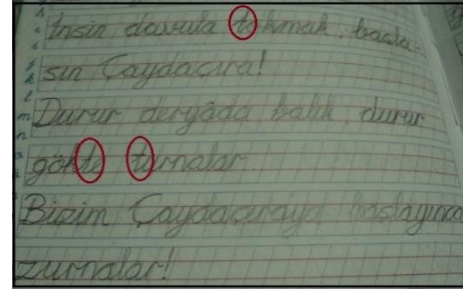 İnsin davula tokmak, başla-
sın Çaydaçıra!
Durur deryâda balık, durur
gökte turnalar.
Bizim Çaydaçıraya başlayınca
zurnalar!